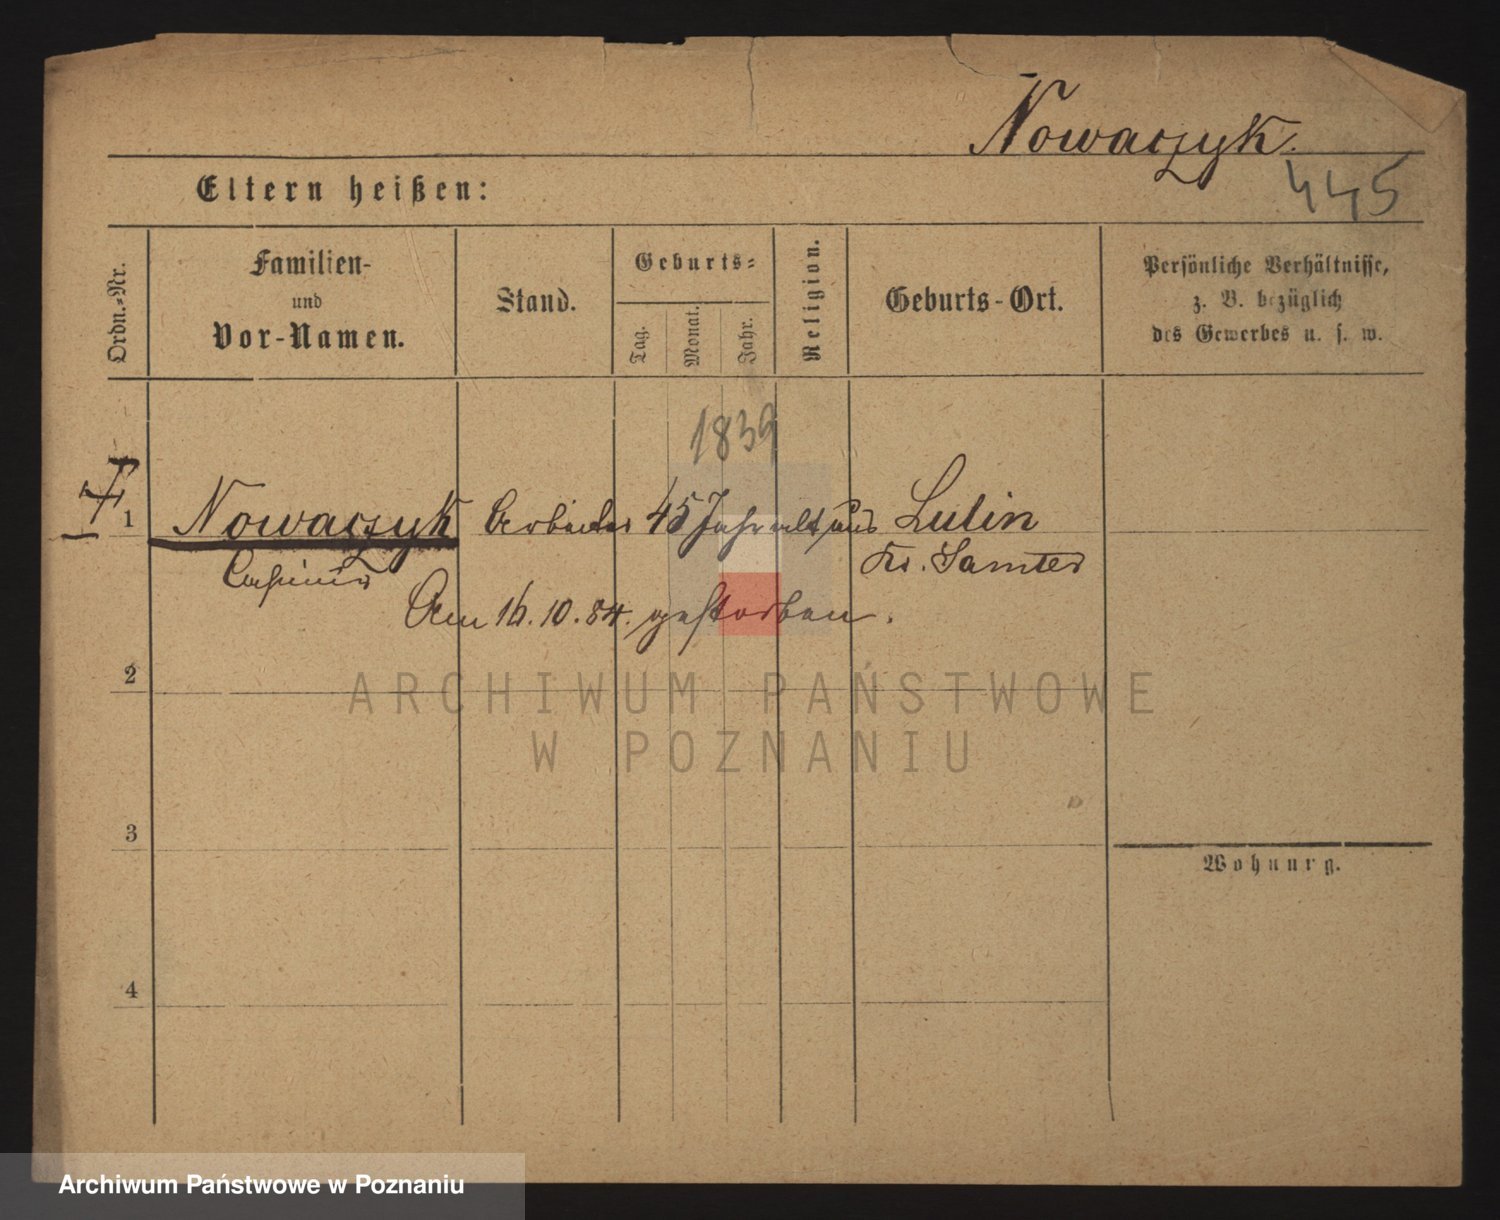 Nowaczyk.
445
Eltern heißen:
Ordn.-Nr.
Familien-
und
Vor-Namen.
Stand.
Geburts-
Tag.
Monat.
Jahr.
Religion.
Geburts-Ort.
Persönliche Verhältnisse,
z. B. bezüglich
des Gewerbes u. s. w.
1839
1 Nowaczyk Arbeiter 45 Jahr alt, aus Lulin
Casimir Kr. Samter
Am 16.10.84. gestorben.
2
ARCHIWUM PAŃSTWOWE
W POZNANIU
3
Wohnung.
4
Archiwum Państwowe w Poznaniu